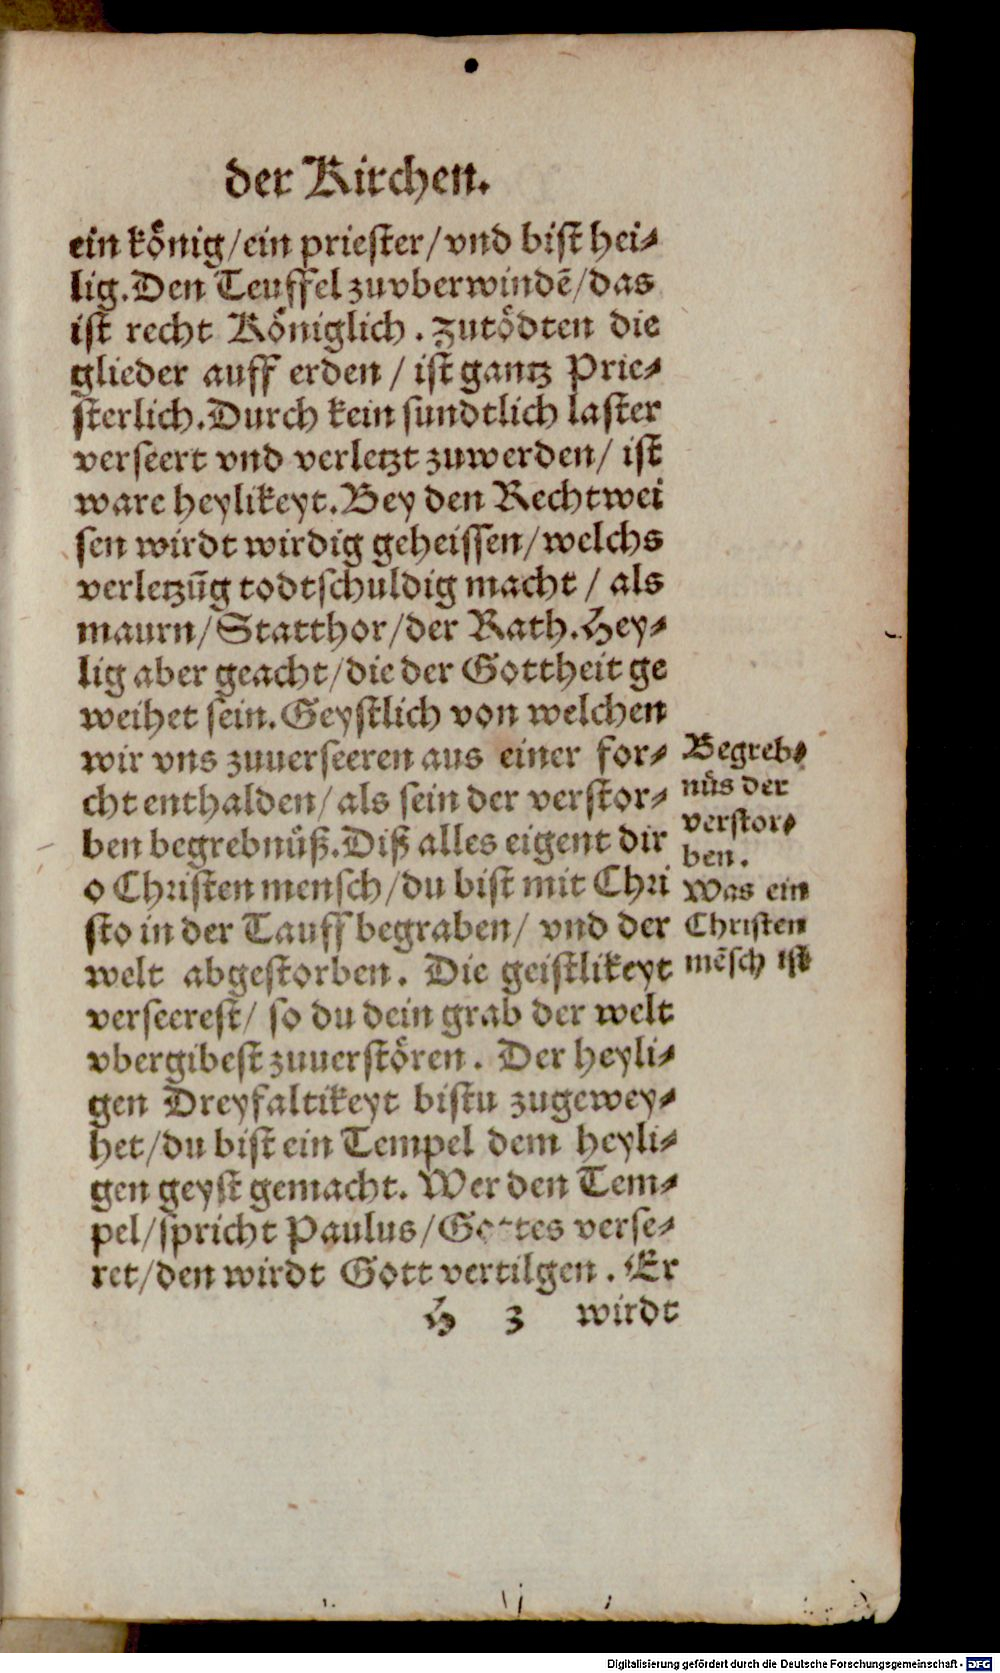 der Kirchen.
ein koͤnig/ein priester/vnd bist hei⸗
lig.Den Teuffel zuvberwindẽ/das
ist recht Koͤniglich. Zutoͤdten die
glieder auff erden/ ist gantz Prie⸗
sterlich.Durch kein sundtlich laster
verseert vnd verletzt zuwerden/ ist
ware heylikeyt.Bey den Rechtwei
sen wirdt wirdig geheissen/welchs
verletzũg todtschuldig macht/ als
maurn/Statthor/der Rath.Hey⸗
lig aber geacht/die der Gottheit ge
weihet sein.Geystlich von welchen
wir vns zuuerseeren aus einer for⸗
cht enthalden/als sein der verstor⸗
ben begrebnuͤß.Diß alles eigent dir
o Christen mensch/du bist mit Chri
sto in der Tauff begraben/ vnd der
welt abgestorben. Die geistlikeyt
verseerest/ so du dein grab der welt
vbergibest zuuerstoͤren. Der heyli⸗
gen Dreyfaltikeyt bistu zugewey⸗
het/du bist ein Tempel dem heyli⸗
gen geyst gemacht. Wer den Tem⸗
pel/spricht Paulus/Gottes verse⸗
ret/den wirdt Gott vertilgen. Er
H 3 wirdt
Begreb⸗
nuͤs der
verstor⸗
ben.
Was ein
Christen
mẽsch ist
Digitalisierung gefördert durch die Deutsche Forschungsgemeinschaft - DFG